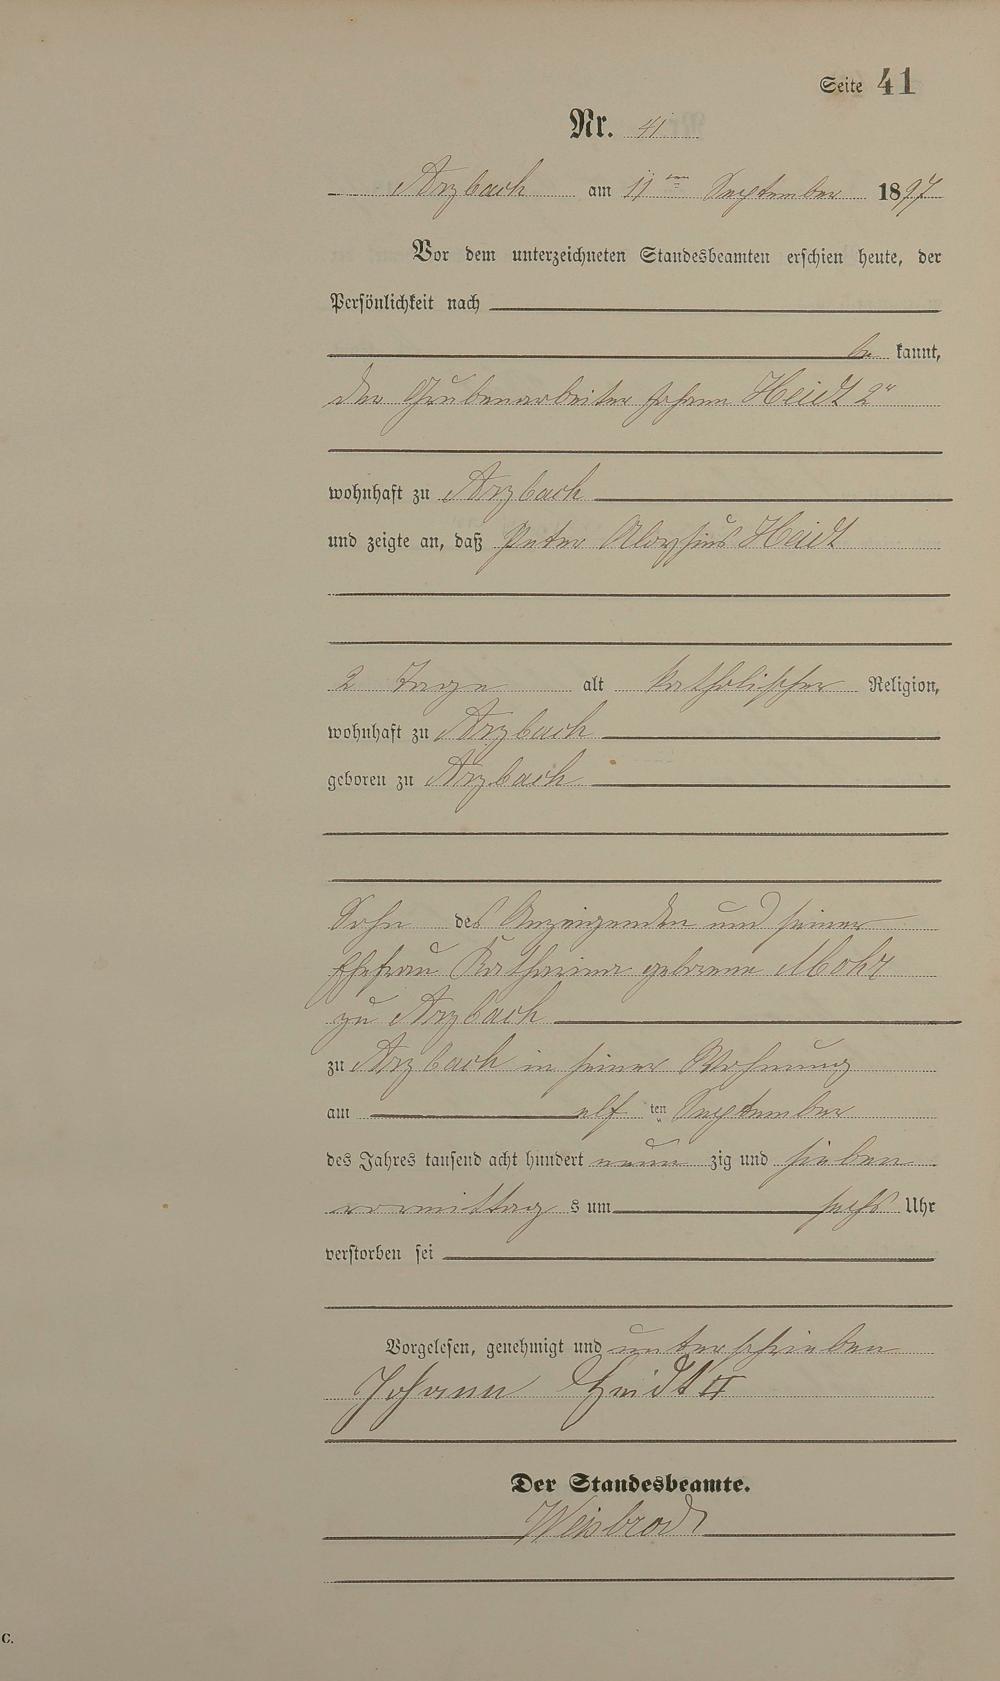 Seite 41
Nr. 41
Arzbach am 11ten September 1897
Vor dem unterzeichneten Standesbeamten erschien heute, der
Persönlichkeit nach
be kannt,
der Grubenarbeiter Johann Heidt 2r
wohnhaft zu Arzbach
und zeigte an, daß Peter Aloysius Heidt
2 Tage alt katholischer Religion,
wohnhaft zu Arzbach
geboren zu Arzbach
Sohn des Anzeigenden und seiner
Ehefrau Katharina geborene Mohr
zu Arzbach
zu Arzbach in seiner Wohnung
am elf ten September
des Jahres tausend acht hundert neun zig und sieben
vormittag s um sechs Uhr
verstorben sei
Vorgelesen, genehmigt und unterschrieben
Johann Heidt II
Der Standesbeamte.
Weisbrod
C.